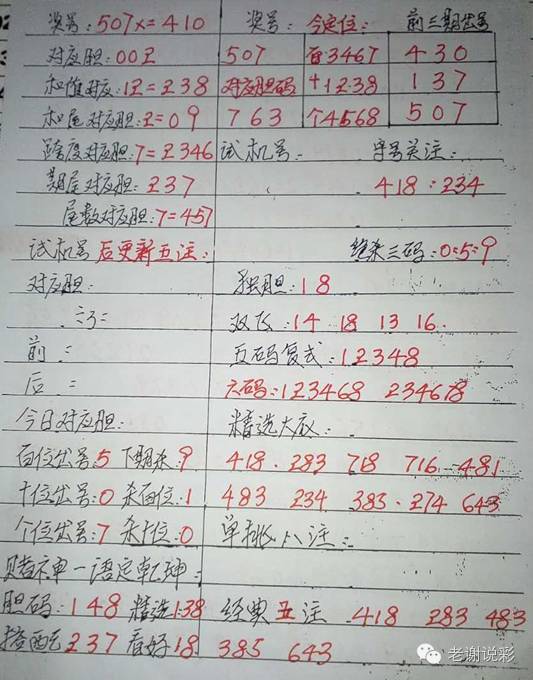 奖号:507X=410 奖号: 今定位: 前三期出号
对应胆:00Z 507 百3467 430
和值对应:12=238 对应胆码 十1238 137
和尾对应胆:2=09 763 个4568 507
跨度对应胆:7=2346 试机号: 字号关注:
期尾对应胆:237 418:234
尾数对应胆:7=457
试机号后更新五注: 绝杀三码:0:5:9
对应胆: 独胆:18
双飞:14 18 13 16
前: 五码复式:12348
后: 六码:123468 234678
今日对应胆: 精选大底:
百位出号:5 下期杀:9 418. 283 718 716 481
十位出号:0 杀百位:1 483 234 383. 274 643
个位出号:7 杀十位:0 单挑八注:
赌神一语定乾坤:
胆码:148 精选138 经典五注 418 283 483
搭配237 看好18 385 643
老谢说彩